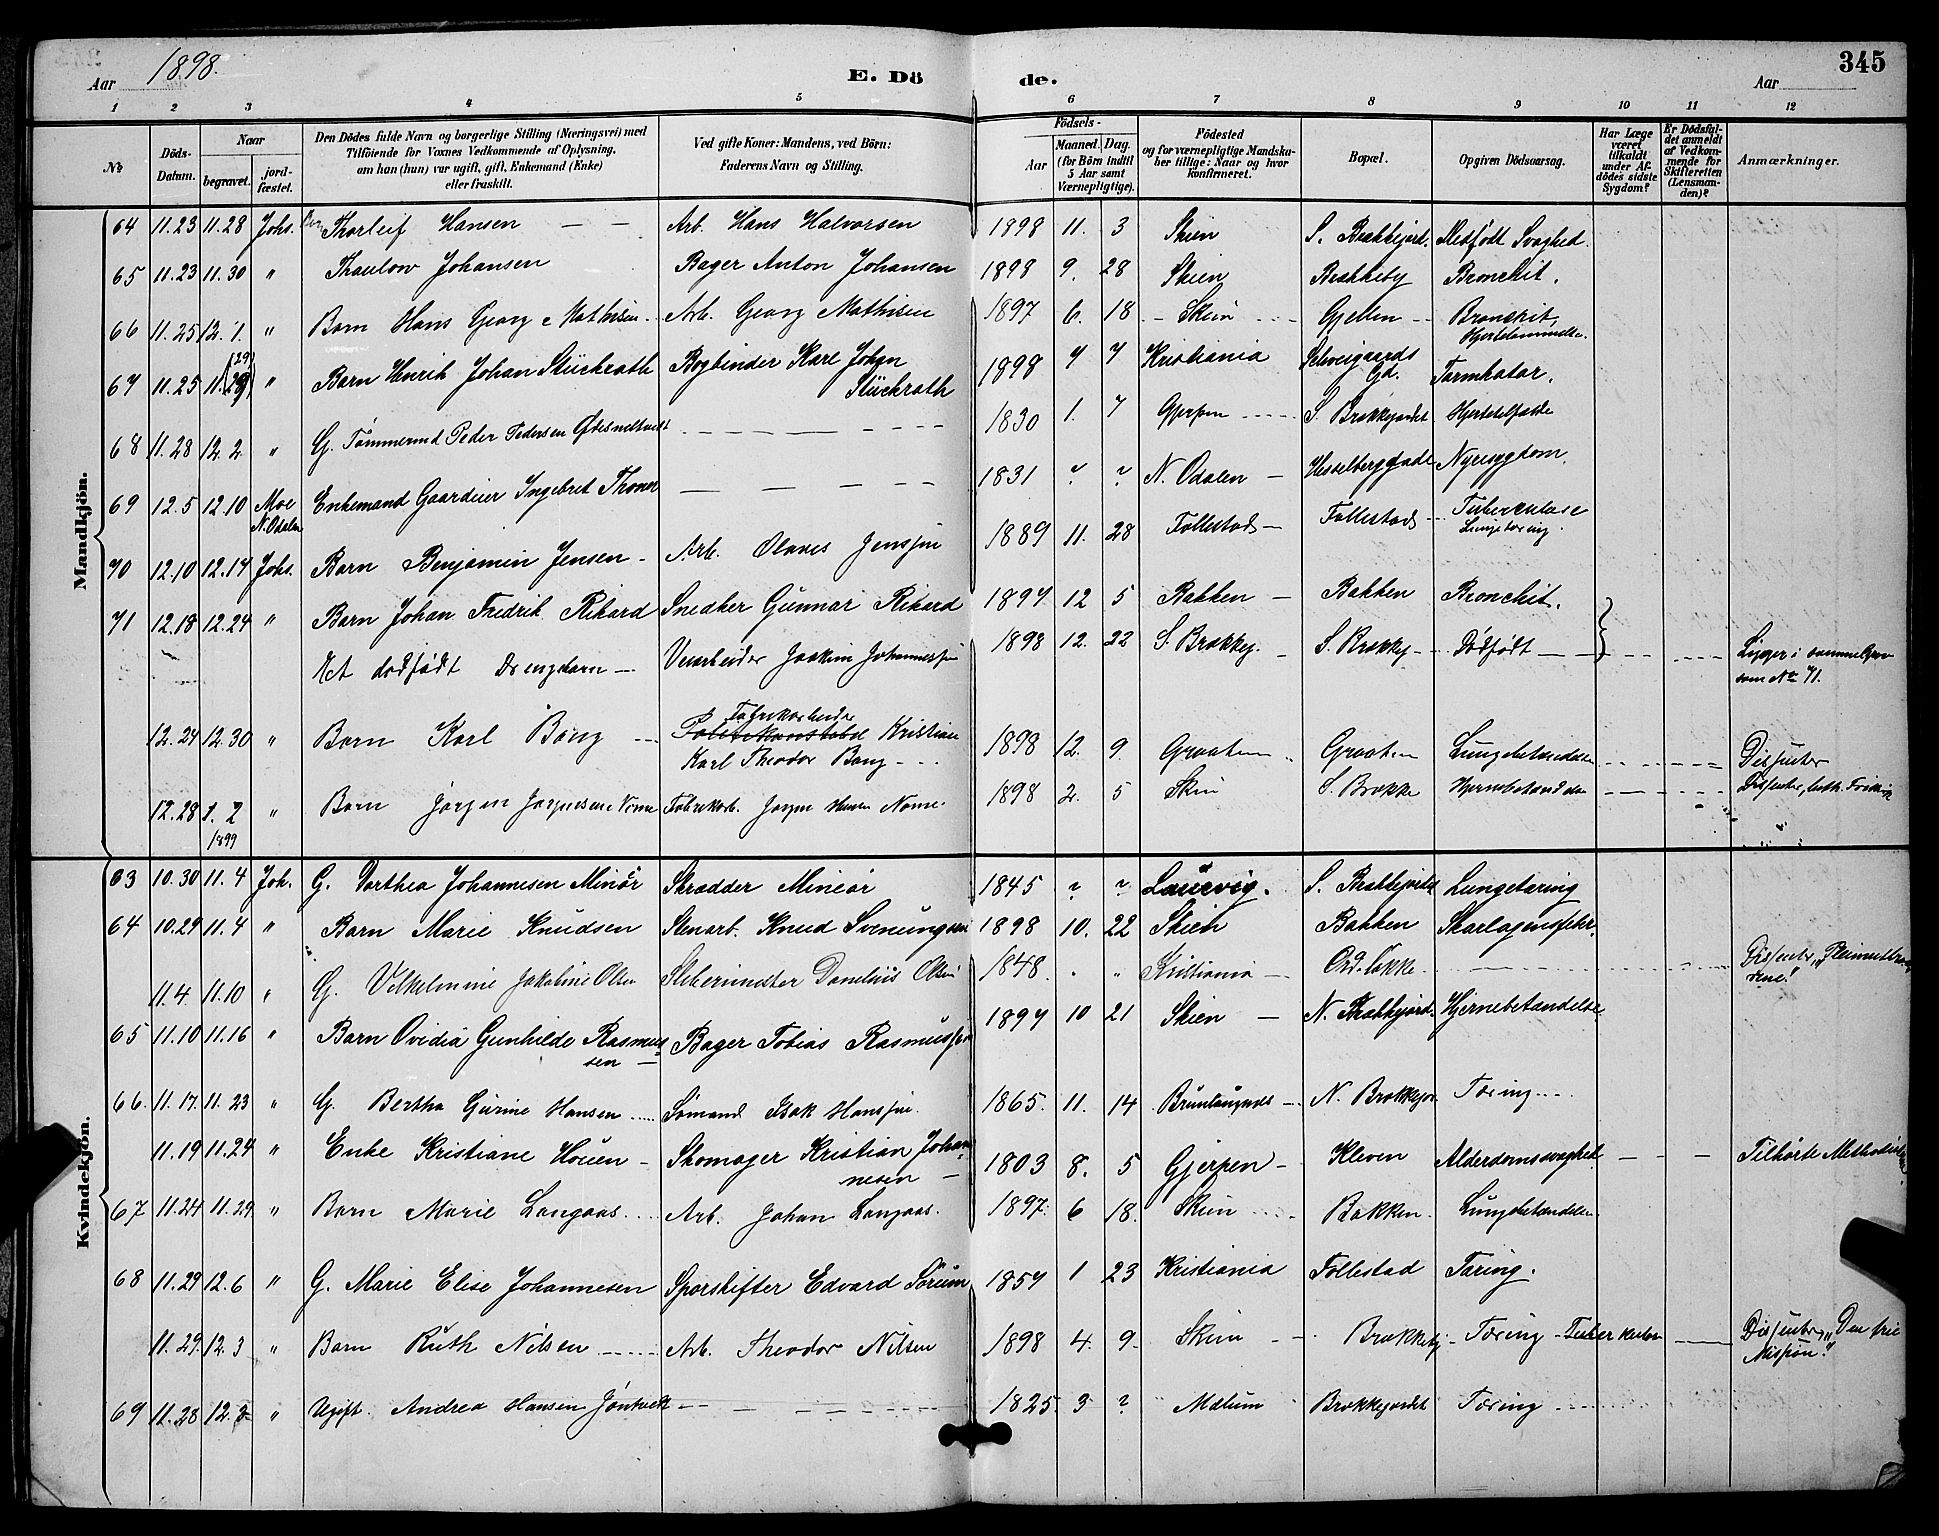 Aar 1898.
E. Dö de.
Aar
345
1 2 3 4 5 6 7 8 9 10 11 12
No
Döds-Datum.
Naar
begravet.
jord-fæstet.
Den Dödes fulde Navn og borgerlige Stilling (Næringsvei) med
Tilföiende for Voxnes Vedkommende af Oplysning,
om han (hun) var ugift, gift, Enkemand (Enke)
eller fraskilt.
Ved gifte Koner: Mandens, ved Börn:
Faderens Navn og Stilling.
Födsels-
Aar
Maaned. Dag.
(for Börn indtil
5 Aar samt
Værnepligtige).
Födested
og for værnepligtige Mandska-
ber tillige: Naar og hvor
konfirmeret.
Bopæl.
Opgiven Dödsaarsag.
Har Læge
været
tilkaldt
under Af-
dödes sidste
Sygdom?
Er Dödsfal-
det anmeldt
af Vedkom-
mende for
Skifteretten
(Lensman-
den)?
Anmærkninger.
Mandkjön.
64 11.23 11.28 Johs. Thorleif Hansen — — Arb. Hans Halvorsen 1898 11. 3 Skien S. Brækkejord. Medfödt Svaghed.
65 11.23 11.30 " Thaulow Johansen Bager Anton Johansen 1898 9. 28 Skien Brækkeby Bronchit.
66 11.25 12.1. " Barn Hans Georg Mathisen Arb. Georg Mathisen 1897 6. 18 Skien Gjellen Bronchit,
67 11.25 11. (29) " Barn Henrik Johan Stückrath Bogbinder Karl Johan 1898 7 7 Kristiania Schweigaards Gd. Tarmkatar.
Stückrath
68 11.28 12.2 " G. Tömmermd Peder Pedersen 1830 1. 7 Gjerpen S. Brækkejordet Hjertelfælde
69 12.5 12.10 Moe N. Odalen Enkemand Gaardeier Ingebret 1831 ? ? N. Odalen Hesselberggade Nyresygdom.
70 12.10 12.14 Johs. Barn Benjamin Jensen Arb. Olaves Jensen 1889 11. 28 Follestad Follestad Tuberkulose
Lungetæring.
71 12.18 12.24 " Barn Johan Fredrik Rikard Snedker Gunnar Rikard 1897 12 5 Bakken Bakken Bronchit.
Et dödfödt Drengebarn Veiarbeider Joakim Johannessen 1898 12. 22 S. Brækkej. S. Brækkej. Dödfödt Ligger i samme Grav
som No 71.
12.24 12.30 " Barn Karl Bang Fabrikarbeider
Politikonstabel Kristian 1898 12. 9 Graaten Graaten Lungebetændelse Dissenter
Karl Theodor Bang
12.28 1.2 " Barn Jörgen Jörgensen Fabrikarb. Jörgen Hansen Nome. 1898 2. 5 Skien S. Brække Hjernebetændelse Dissenter, luth. Frikirk
1899
Kvindekjön.
63 10.30 11.4 Joh. G. Dorthea Johannesen Minör Skrædder Mineör 1845 ? ? Laurvig. S. Brækkejordet Lungetæring
64 10.29 11.4 " Barn Marie Knudsen Stenarb. Knud Svenungsen 1898 10. 22 Skien Bakken Skarlagensfeber.
11.4 11.10 " G. Vilhelmine Jakobine Olsen Sliberimester Danelius Olsen 1848 . " Kristiania Ord. løkke Dissenter,
65 11.10 11.16 " Barn Ovidia Gunhilde Rasmus- Bager Tobias Rasmussen 1897 10 21 Skien N. Brækkejord. Hjernebetændelse
sen
66. 11.17 11.23 " G. Bertha Gurine Hansen Sömand Isak Hanssen. 1865. 11. 14 Brunlangnes N. Brækkejor. Tæring
11.19 11.24 " Enke Kristiane Houen Skomager Kristian Johan- 1803 8. 5 Gjerpen Kleven Alderdomssvaghed Tilhörte Methodist
nesen
67 11.24 11.29 " Barn Marie Langaas Arb. Johan Langaas 1897. 6 18. Skien Bakken Lungebetændelse
68 11.29 12.6 " G. Marie Elise Johannesen Sporskifter Edvard Sörum 1857 1 23 Kristiania Follestad Tæring.
11.29 12.3 " Barn Ruth Nilsen Arb. Theodor Nilsen 1898 4. 9 Skien Brækkebj Tæring Tuberkulose Dissenter, "Den frie
Mission"
69 11.28 12.2 " Ugift. Andrea Hansen Jöntvedt 1825. 3 ? Mælum Brækkejordet Tæring